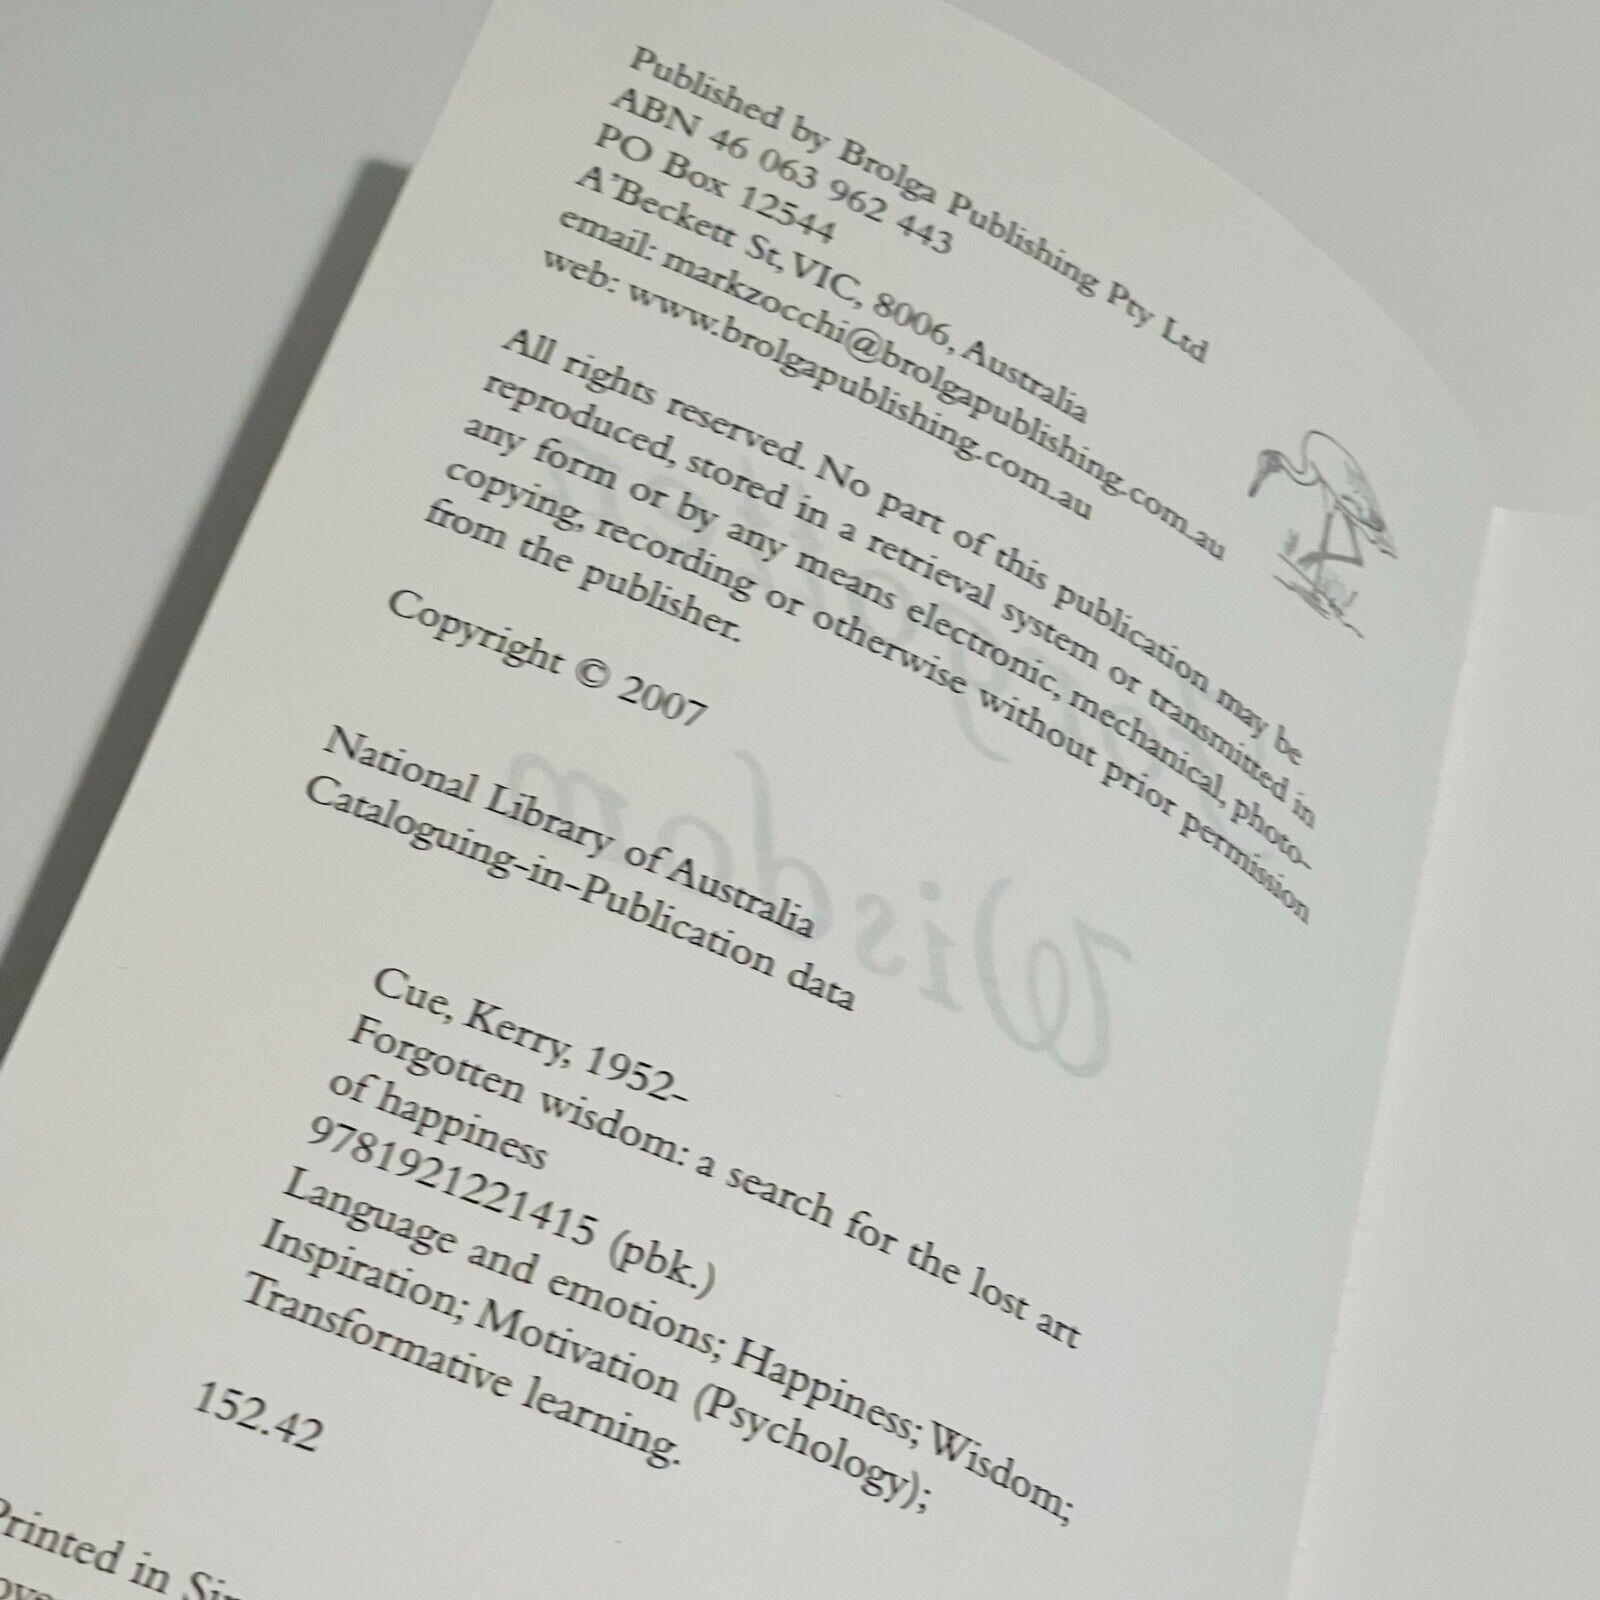 Published by Brolga Publishing Pty Ltd
ABN 46 063 962 443
PO Box 12544
A'Beckett St, VIC, 8006, Australia
email: markzocchi@brolgapublishing.com.au
web: www.brolgapublishing.com.au
All rights reserved. No part of this publication may be
reproduced, stored in a retrieval system or transmitted in
any form or by any means electronic, mechanical, photo-
copying, recording or otherwise without prior permission
from the publisher.
Copyright © 2007
National Library of Australia
Cataloguing-in-Publication data
Cue, Kerry, 1952-
Forgotten wisdom: a search for the lost art
of happiness
9781921221415 (pbk.)
Language and emotions; Happiness; Wisdom;
Inspiration; Motivation (Psychology);
Transformative learning.
152.42
Printed in